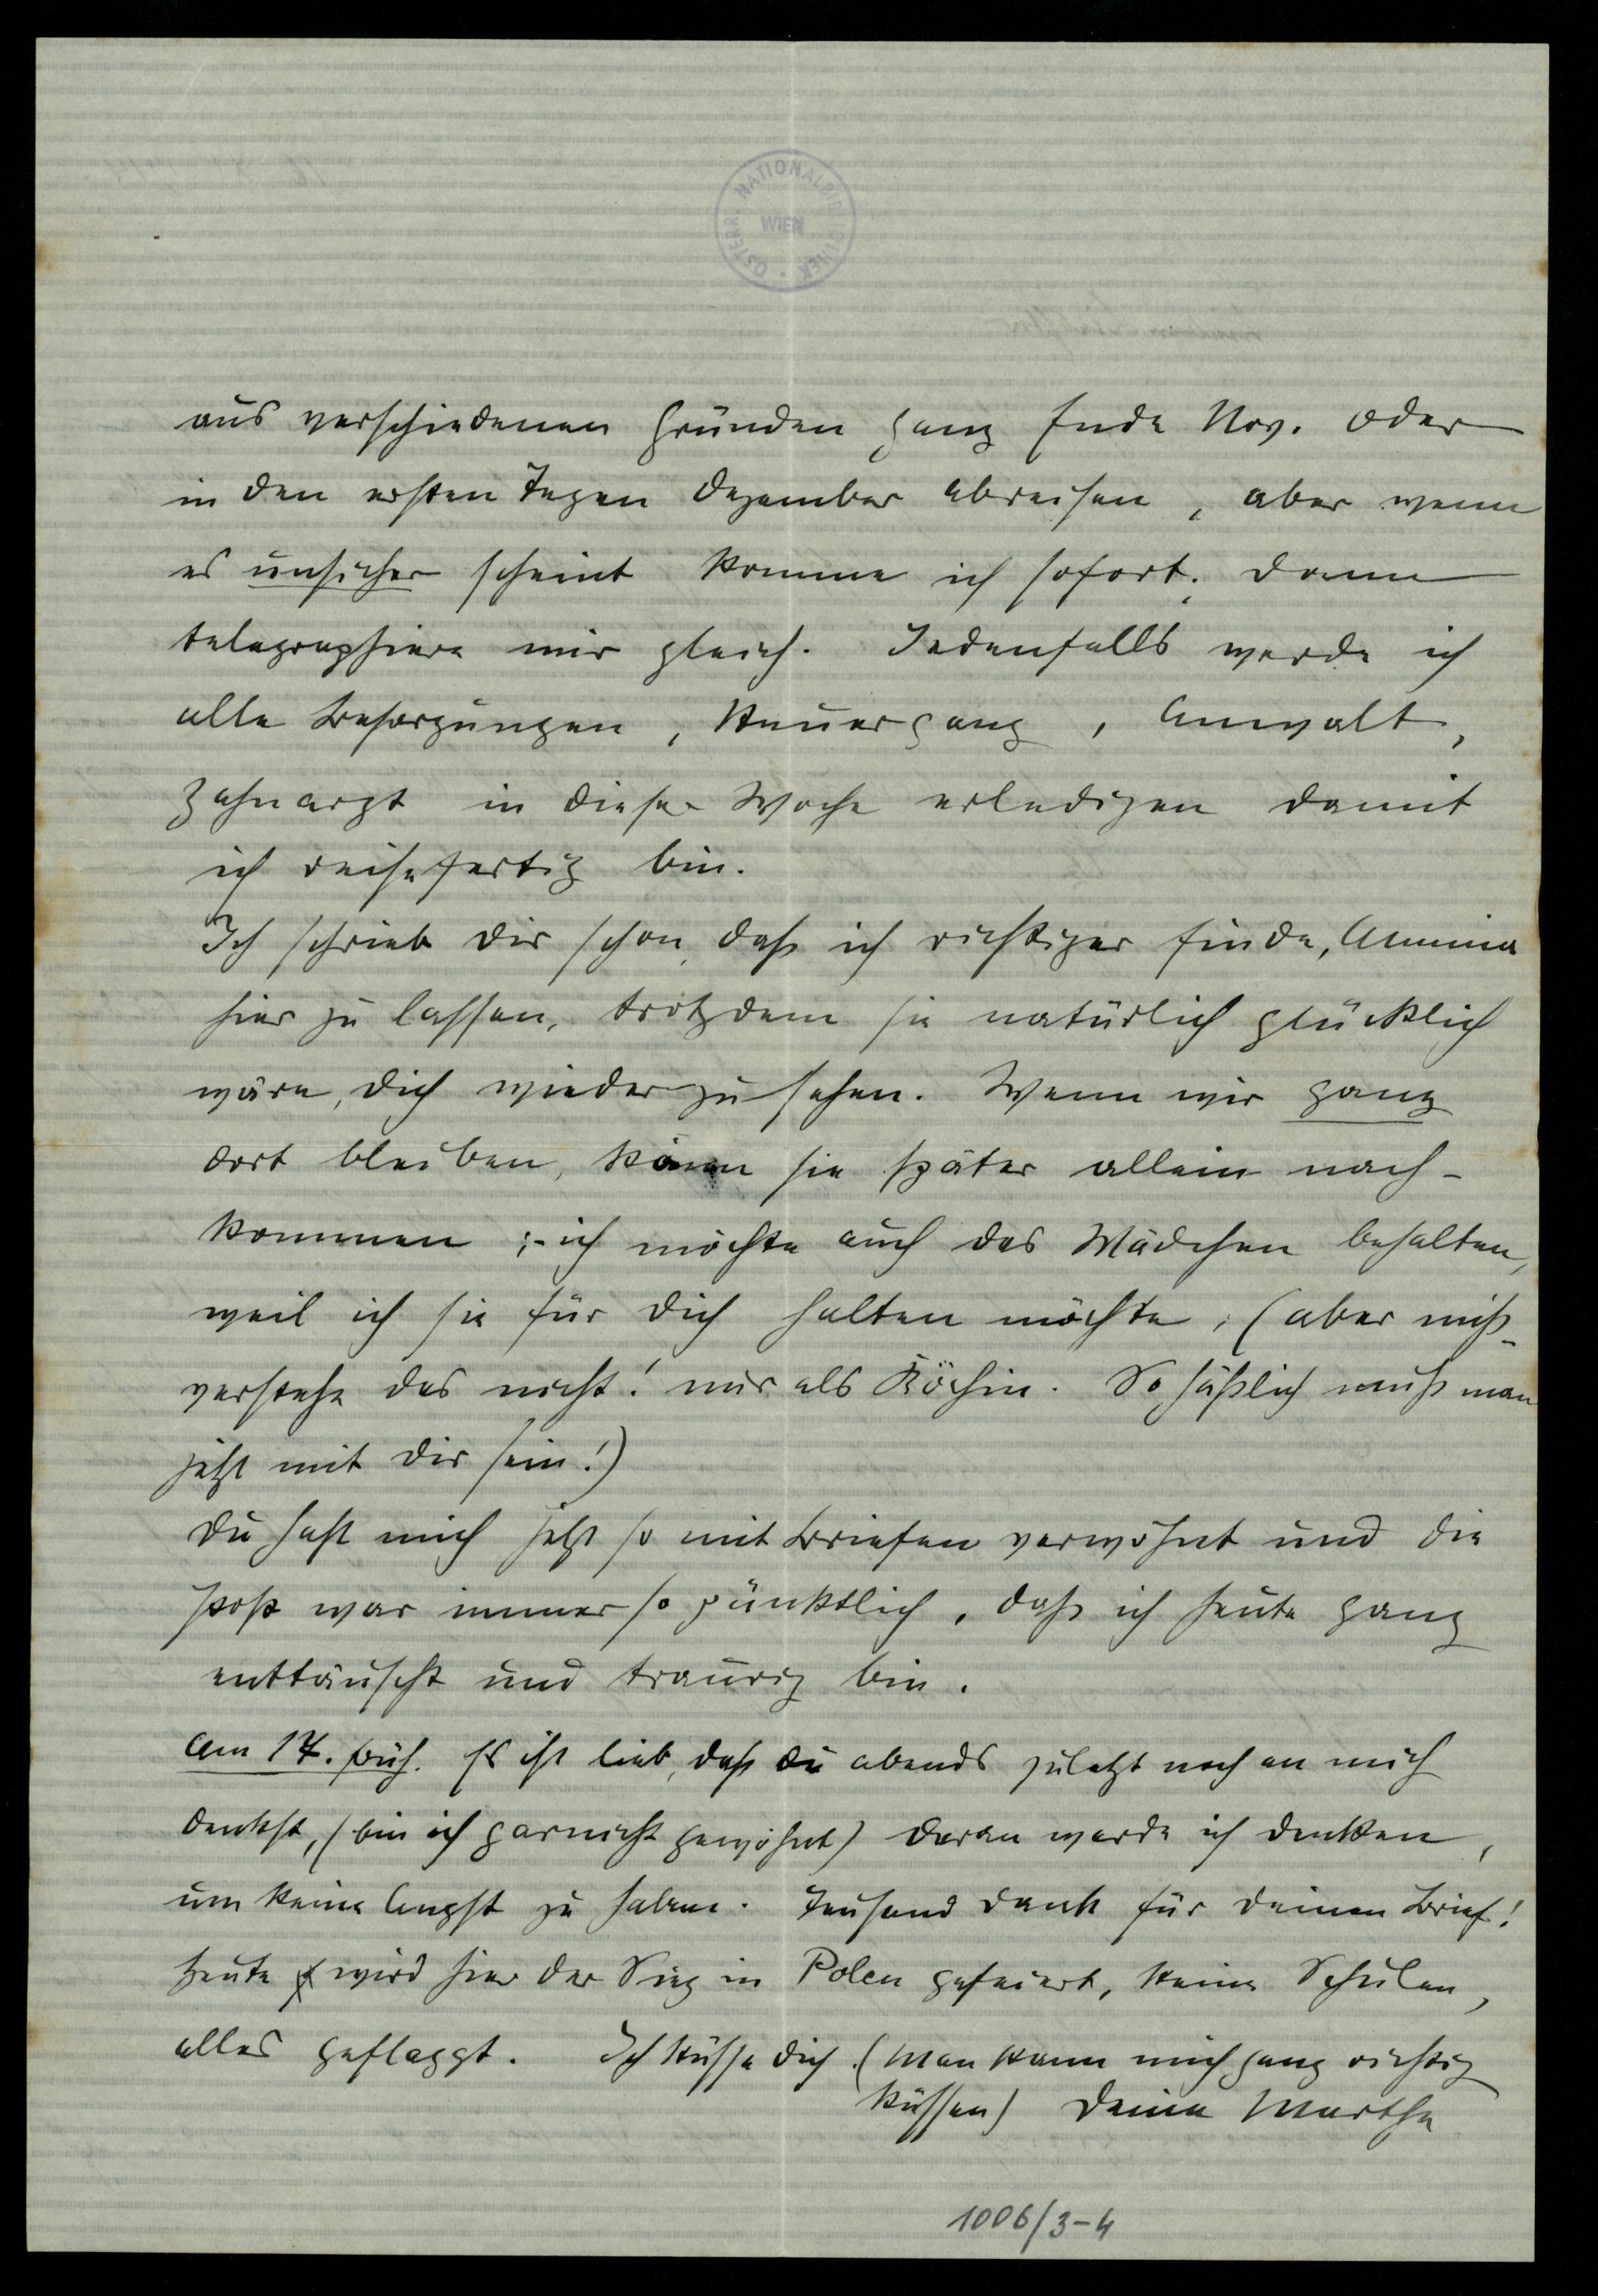 ÖSTERR. NATIONALBIBLIOTHEK · WIEN
aus verschiedenen Gründen ganz Ende Nov. oder
in den ersten Tagen Dezember abreisen, aber wenn
es unsicher scheint komme ich sofort, dann
telegraphiere mir gleich. Jedenfalls werde ich
alle Besorgungen, Steuergang, Anwalt,
Zahnarzt in dieser Woche erledigen damit
ich reisefertig bin.
Ich schrieb Dir schon, daß ich richtiger finde, Annina
hier zu lassen, trotzdem sie natürlich glücklich
wäre, Dich wieder zu sehen. Wenn wir ganz
dort bleiben, kann sie später allein nach-
kommen ;- ich möchte auch das Mädchen behalten,
weil ich sie für Dich halten möchte, (aber miß-
verstehe das nicht! nur als Köchin. So häßlich muß man
jetzt mit Dir sein!)
Du hast mich jetzt so mit Briefen verwöhnt und die
Post war immer so pünktlich, daß ich heute ganz
enttäuscht und traurig bin.
Am 17. früh. Es ist lieb, daß Du abends zuletzt noch an mich
denkst, (bin ich garnicht gewöhnt) daran werde ich denken,
um keine Angst zu haben. Tausend Dank für Deinen Brief!
Heute wird hier der Sieg in Polen gefeiert, keine Schulen,
alles geflaggt. Ich küsse Dich. (Man kann mich ganz richtig
küssen) Deine Martha
1006/3-4